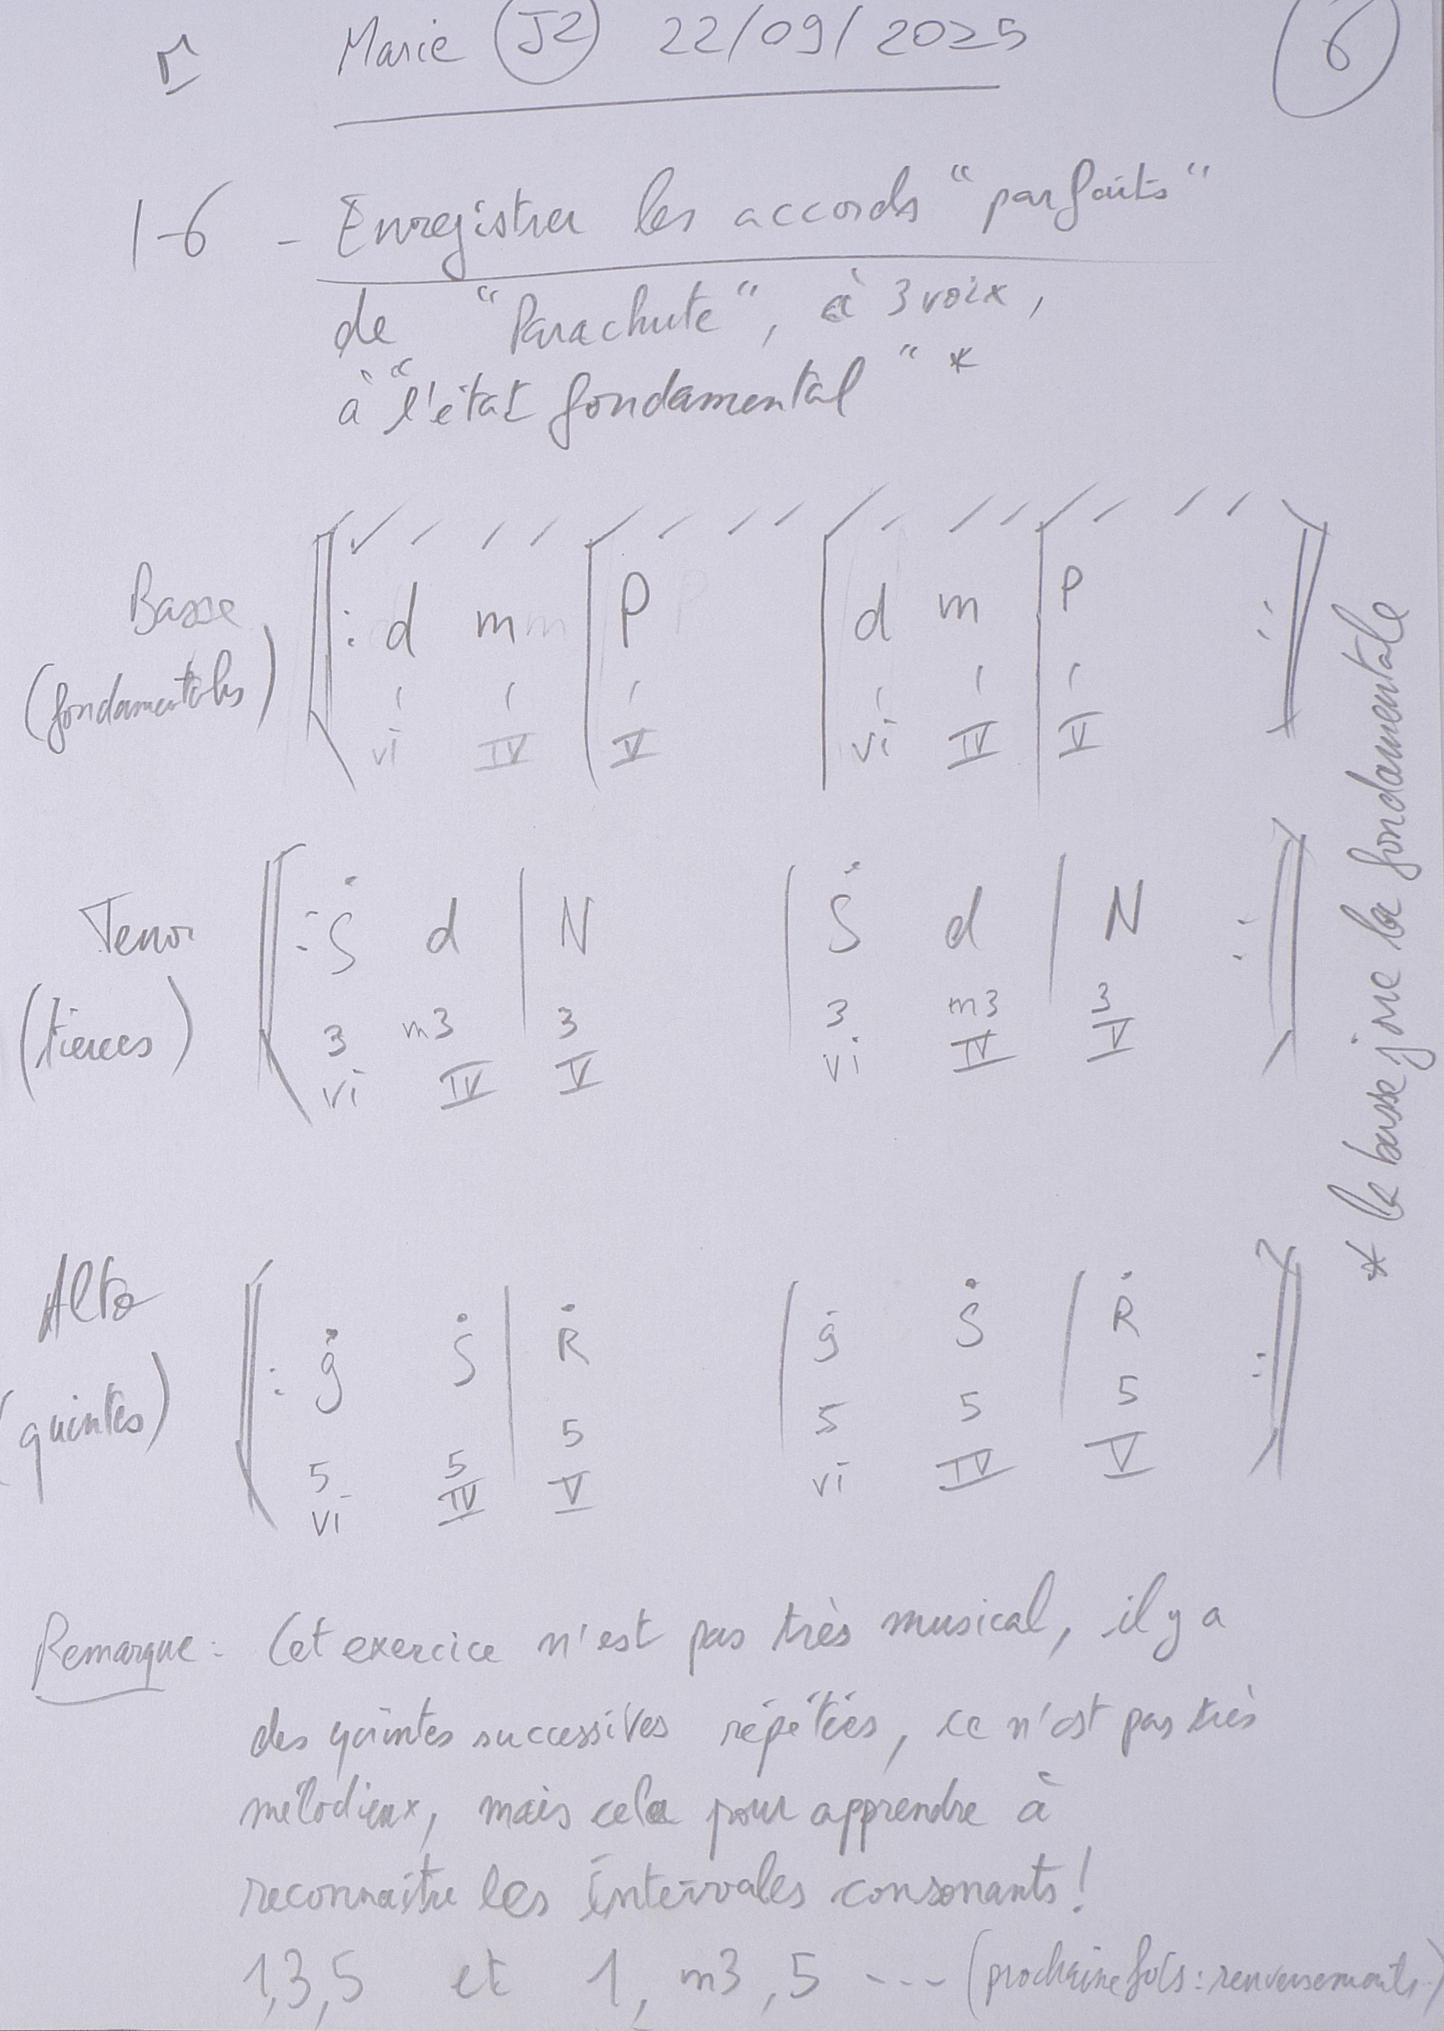 Marie J2 22/09/2025
6
1-6 - Enregistrer les accords "parfaits"
de "Parachute", à 3 voix,
à "l'état fondamental" *
Basse ||: d m | P | d m | P :||
(fondamentales) 1 1 1 1 1 1
vi IV V vi IV V
Tenor ||: Ṡ d | N | Ṡ d | N :||
(tierces) 3 m3 3 3 m3 3
vi IV V vi IV V
Alto ||: ġ Ṡ | Ṙ | ġ Ṡ | Ṙ :||
(quintes) 5 5 5 5 5 5
vi IV V vi IV V
* la basse joue la fondamentale
Remarque : Cet exercice n'est pas très musical, il y a
des quintes successives répétées, ce n'est pas très
mélodieux, mais cela pour apprendre à
reconnaître les intervales consonants!
1,3,5 et 1, m3, 5 --- (prochaine fois : renversements)